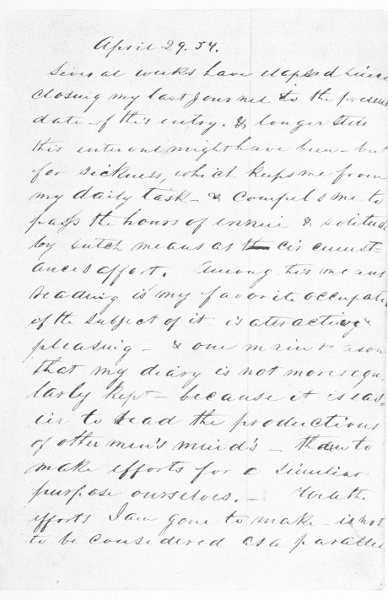 April 29. 54.
Several weeks have elapsed since
closing my last Journal to the present
date of this entry. & longer still
this interval might have been - but
for sickness, which keeps me from
my daily task - & compels me to
pass the hours of ennui & solitude
by sutch means as th circumst-
ances afford. Among his means
reading is my favorite occupati
of the subject of it is atractive &
pleasing - & one main reason
that my diary is not more regu
larly kept - because it is eas
ier to read the productions
of other men's minds - than to
make efforts for a similar
purpose ourselves. -
efforts I am gone to make - is not
to be considered as a parallel